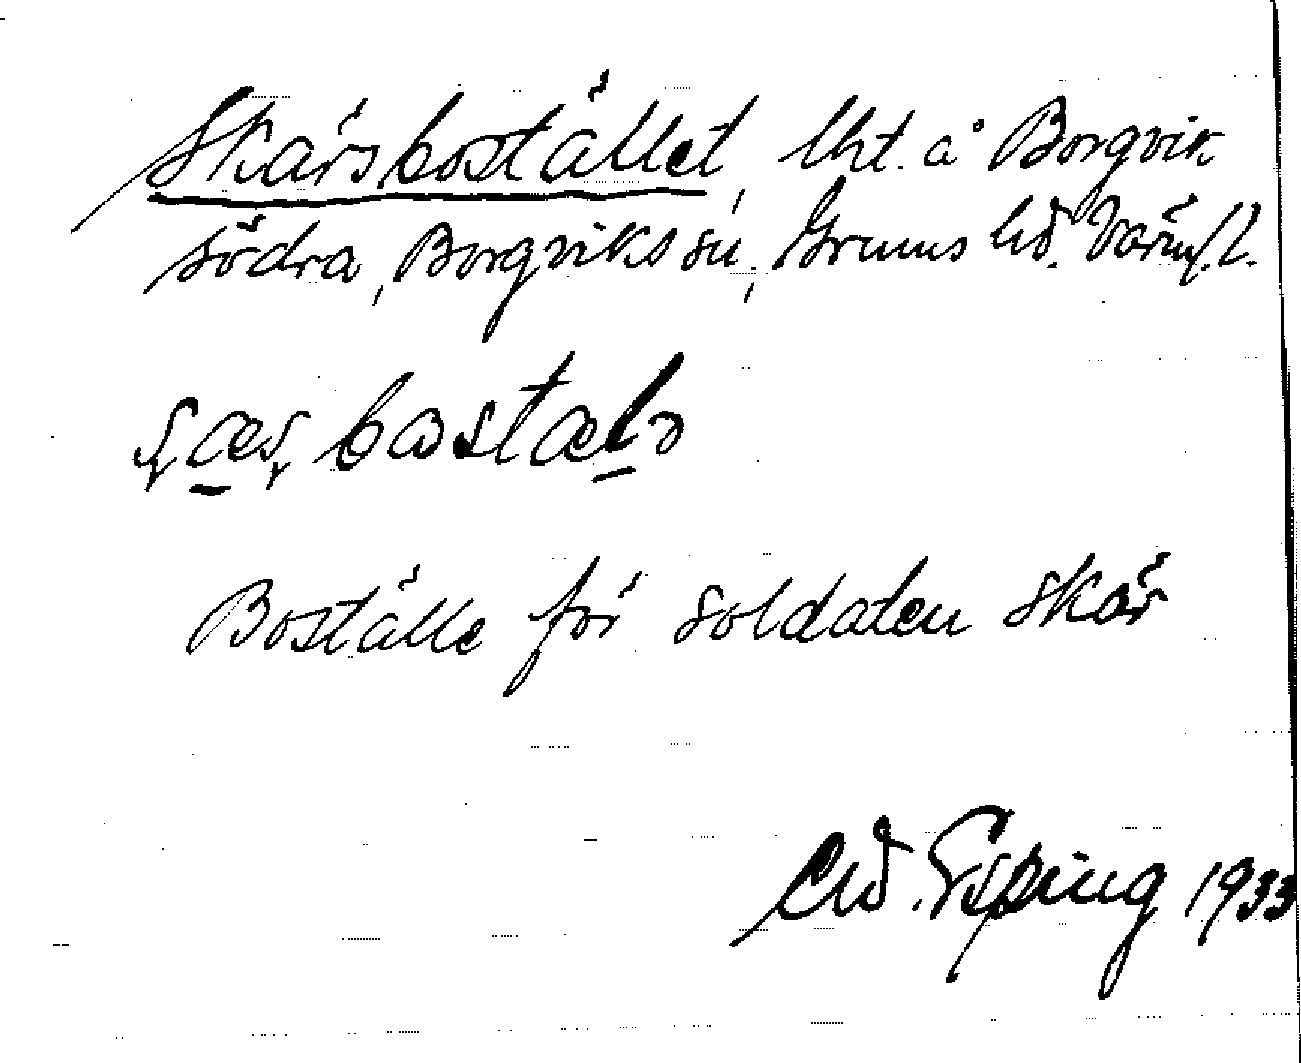 Skärsbostället, lht. å Borgvik
södra, Borgviks sn, Grums hd. Värml.
Boställe för soldaten Skär
Esping 1933